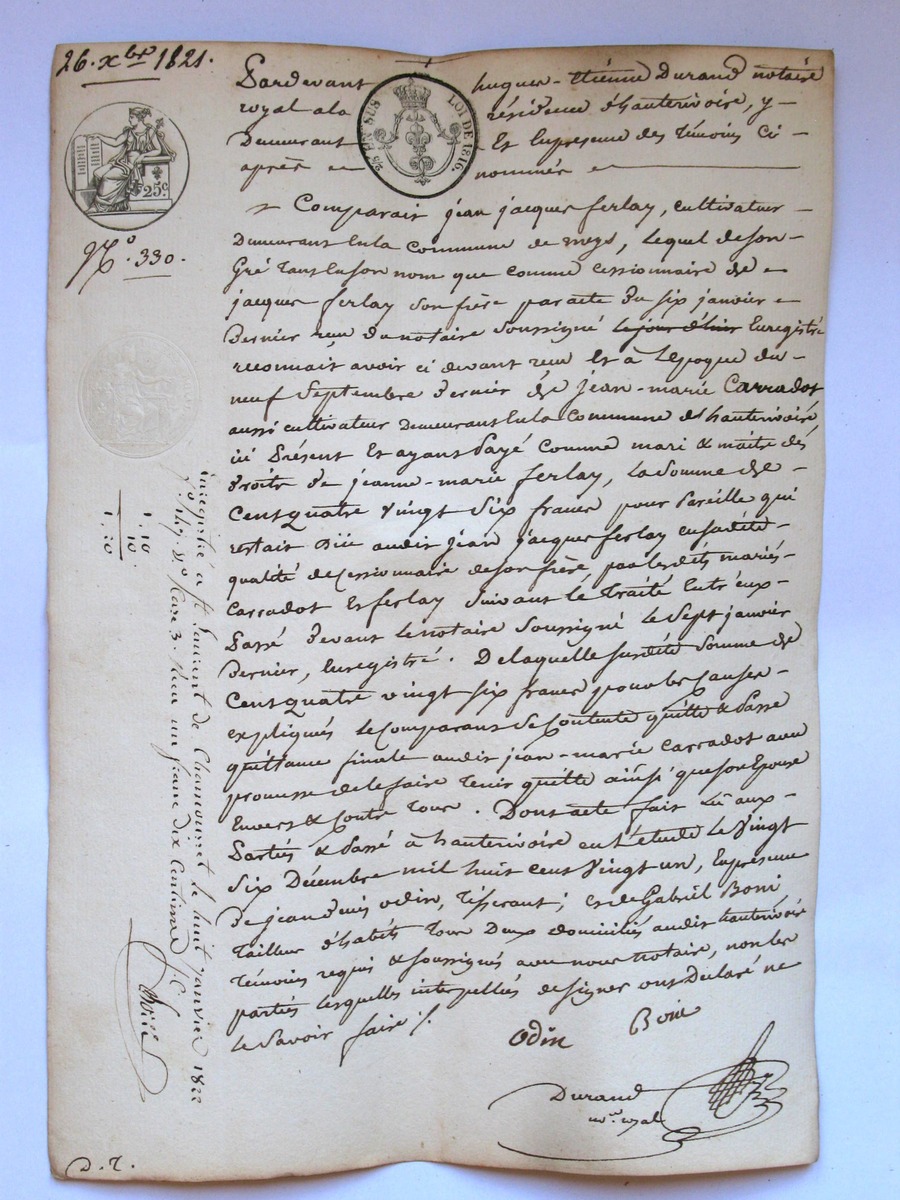 26. xbre 1821.
25c
2/5 EN SUS LOI DE 1816.
No. 330.
Pardevant hugues-Etienne Durand notaire
royal ala résidence d'hauterivoire, y
Demeurant Et Enpresence des témoins Ci-
après nommés
Comparait jean jacques ferlay, cultivateur
Demeurant enla Commune de meys, lequel deson
Gré tant enson nom que comme cessionnaire de
jacques ferlay son frère par acte du six janvier
Dernier reçu du notaire Soussigné Enregistré
reconnait avoir ci devant reçu Et à l'epoque du
neuf Septembre Dernier de jean-marie Carradot
aussi cultivateur Demeurant enla Commune d'hauterivoire
ici Présent Et ayant Payé Comme mari & maitre des
Droits de jeanne-marie ferlay, la Somme de
Cent quatre Vingt Six francs pour Pareille qui
restait Düe audit jean jacques ferlay ensadite
qualité de Cessionnaire deson frère par lesdits mariés
Carradot Et ferlay Suivant le traité Entr'eux
Passé Devant le notaire Soussigné le Sept janvier
Dernier, Enregistré. De laquelle susdite Somme de
Cent quatre vingt six francs pour les causes
expliqués le Comparant Se Contente quitte & Passe
quittance finale audit jean-marie Carradot avec
promesse de le faire tenir quitte ainsi que son Epouse
Envers & Contre tous. Dont acte fait Lu aux
Parties & Passé à hauterivoire en l'étude le Vingt
Six Décembre mil huit cent Vingt un, Enpresence
De jean Denis odin, tisserant; et de Gabriel Boni
tailleur d'habits tous Deux domiciliés audit hauterivoire
témoins requis & soussignés avec nous notaire, non les
parties lesquelles interpellées de signer ont Déclaré ne
le Savoir faire ./.
Odin
Durand
nre royal
1, 10
10.
1, 20
Enregistré à St Laurent de Chamousset le huit janvier 1822
Case 3. Reçu un franc dix Centimes
D. R.